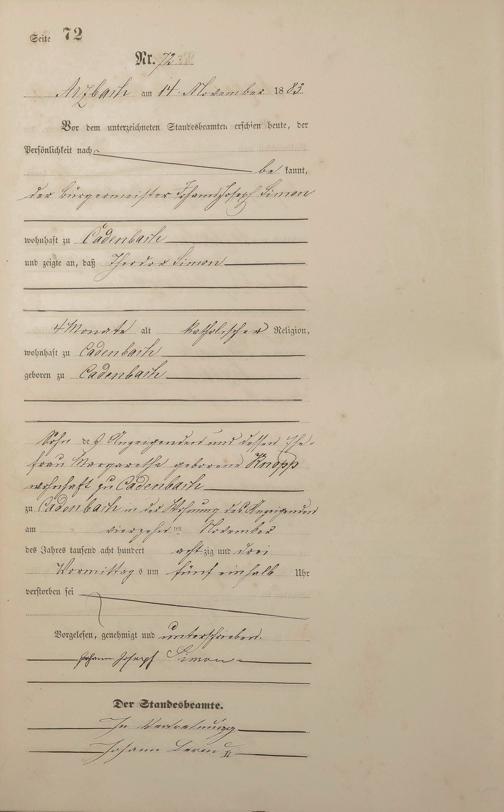 Seite 72
Nr. 72
Arzbach am 14. November 1883.
Vor dem unterzeichneten Standesbeamten erschien heute, der
Persönlichkeit nach
be kannt,
der Bürgermeister Johann Joseph Simon
wohnhaft zu Cadenbach
und zeigte an, daß Theodor Simon
4 Monate alt katholischer Religion,
wohnhaft zu Cadenbach
geboren zu Cadenbach
Sohn des Anzeigenden und dessen Ehe-
frau Margarethe geborene Knopp
wohnhaft zu Cadenbach
zu Cadenbach in der Wohnung des Anzeigenden
am vierzehnten November
des Jahres tausend acht hundert achtzig und drei
Vormittags um fünf einhalb Uhr
verstorben sei
Vorgelesen, genehmigt und unterschrieben
Johann Joseph Simon
Der Standesbeamte.
In Vertretung
Johann II